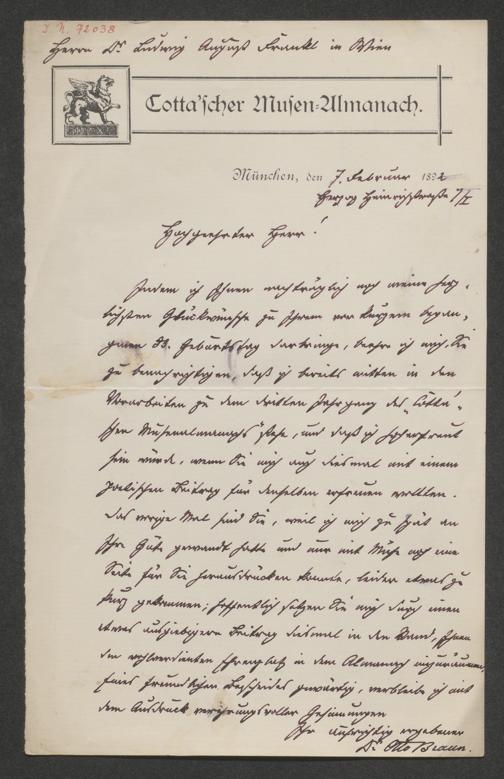 I. N. 72038
Herrn Dr. Ludwig August Frankl in Wien
Cotta'scher Musen-Almanach.
München, den 7. Februar 1892
Herzog Heinrichstraße 7/II
Hochgeehrter Herr!
Indem ich Ihnen nachträglich noch meine herz-
lichsten Glückwünsche zu Ihrem vor Kurzem began-
genen Geburtstag darbringe, beehre ich mich, Sie
zu benachrichtigen, daß ich bereits mitten in den
Vorarbeiten zu dem dritten Jahrgang des „Cotta'-
schen Musenalmanachs" stehe, und daß ich hocherfreut
sein würde, wenn Sie mich auch diesmal mit einem
poetischen Beitrag für denselben erfreuen wollten.
Das vorige Mal sind Sie, weil ich mich zu spät an
Ihre Güte gewandt hatte und nur mit Mühe noch eine
Seite für Sie herausdrücken konnte, leider etwas zu
kurz gekommen; hoffentlich setzen Sie mich durch einen
etwas ausgiebigeren Beitrag diesmal in den Stand, Ihnen
den wohlverdienten Ehrenplatz in dem Almanach einzuräumen.
Eines freundlichen Bescheides gewärtig, verbleibe ich mit
dem Ausdruck verehrungsvoller Gesinnungen
Ihr aufrichtig ergebener
Dr. Otto Braun.